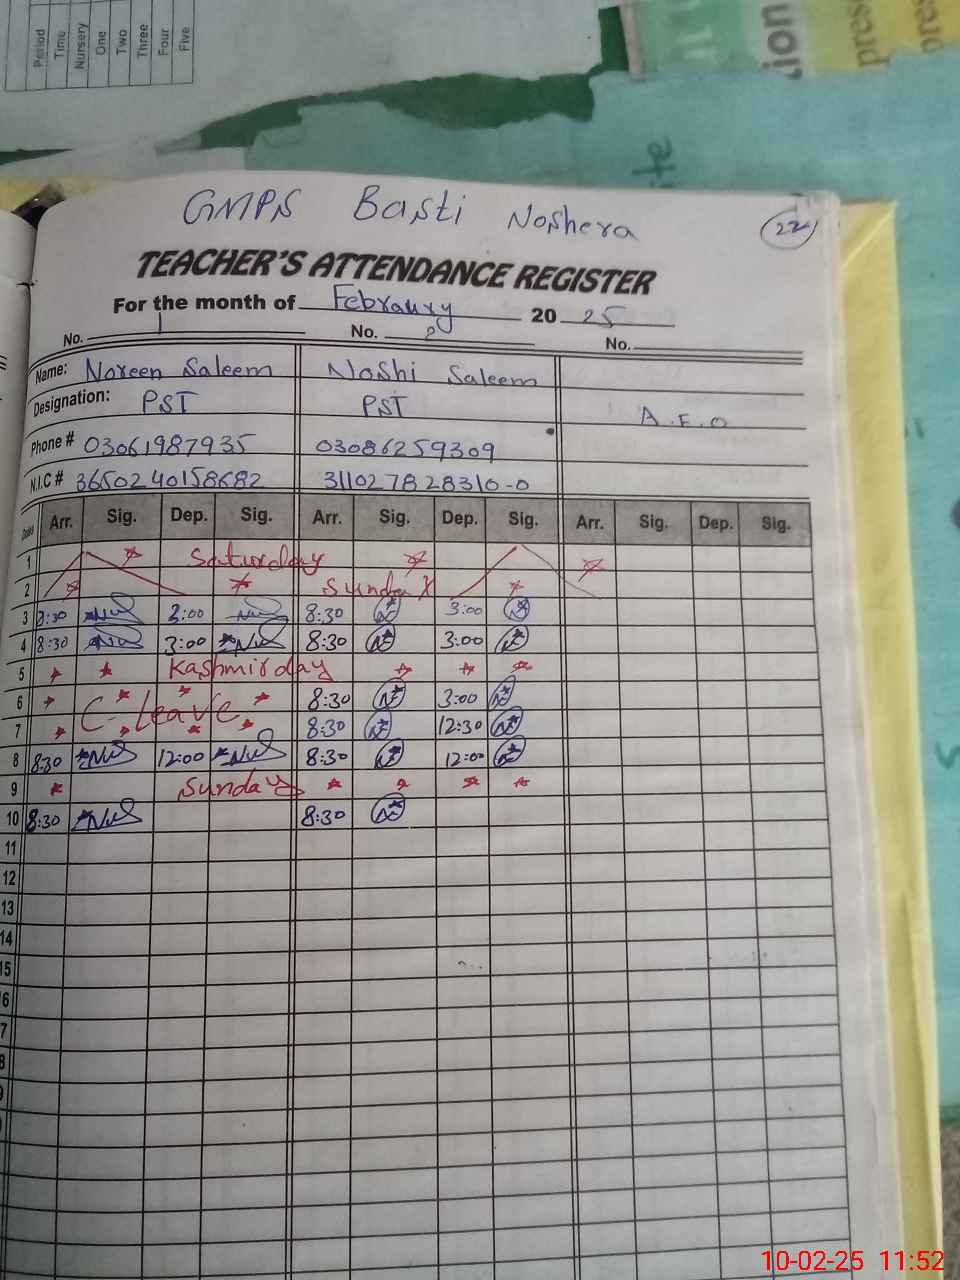 Period
Time
Nursery
One
Two
Three
Four
Five
GMPS Basti Noshera
22
TEACHER'S ATTENDANCE REGISTER
For the month of Febraury 20 25
No. 1 No. 2 No.
Name: Noreen Saleem Noshi Saleem
Designation: PST PST A.E.O
Phone # 03061987935 03086259309
N.I.C # 3650240158682 311027828310-0
Dates Arr. Sig. Dep. Sig. Arr. Sig. Dep. Sig. Arr. Sig. Dep. Sig.
1 Saturday
2 Sunday
3 8:30 3:00 8:30 3:00
4 8:30 3:00 8:30 3:00
5 Kashmir day
6 C-Leave 8:30 3:00
7 8:30 12:30
8 8:30 12:00 8:30 12:00
9 Sunday
10 8:30 8:30
11
12
13
14
15
6
7
8
10-02-25 11:52